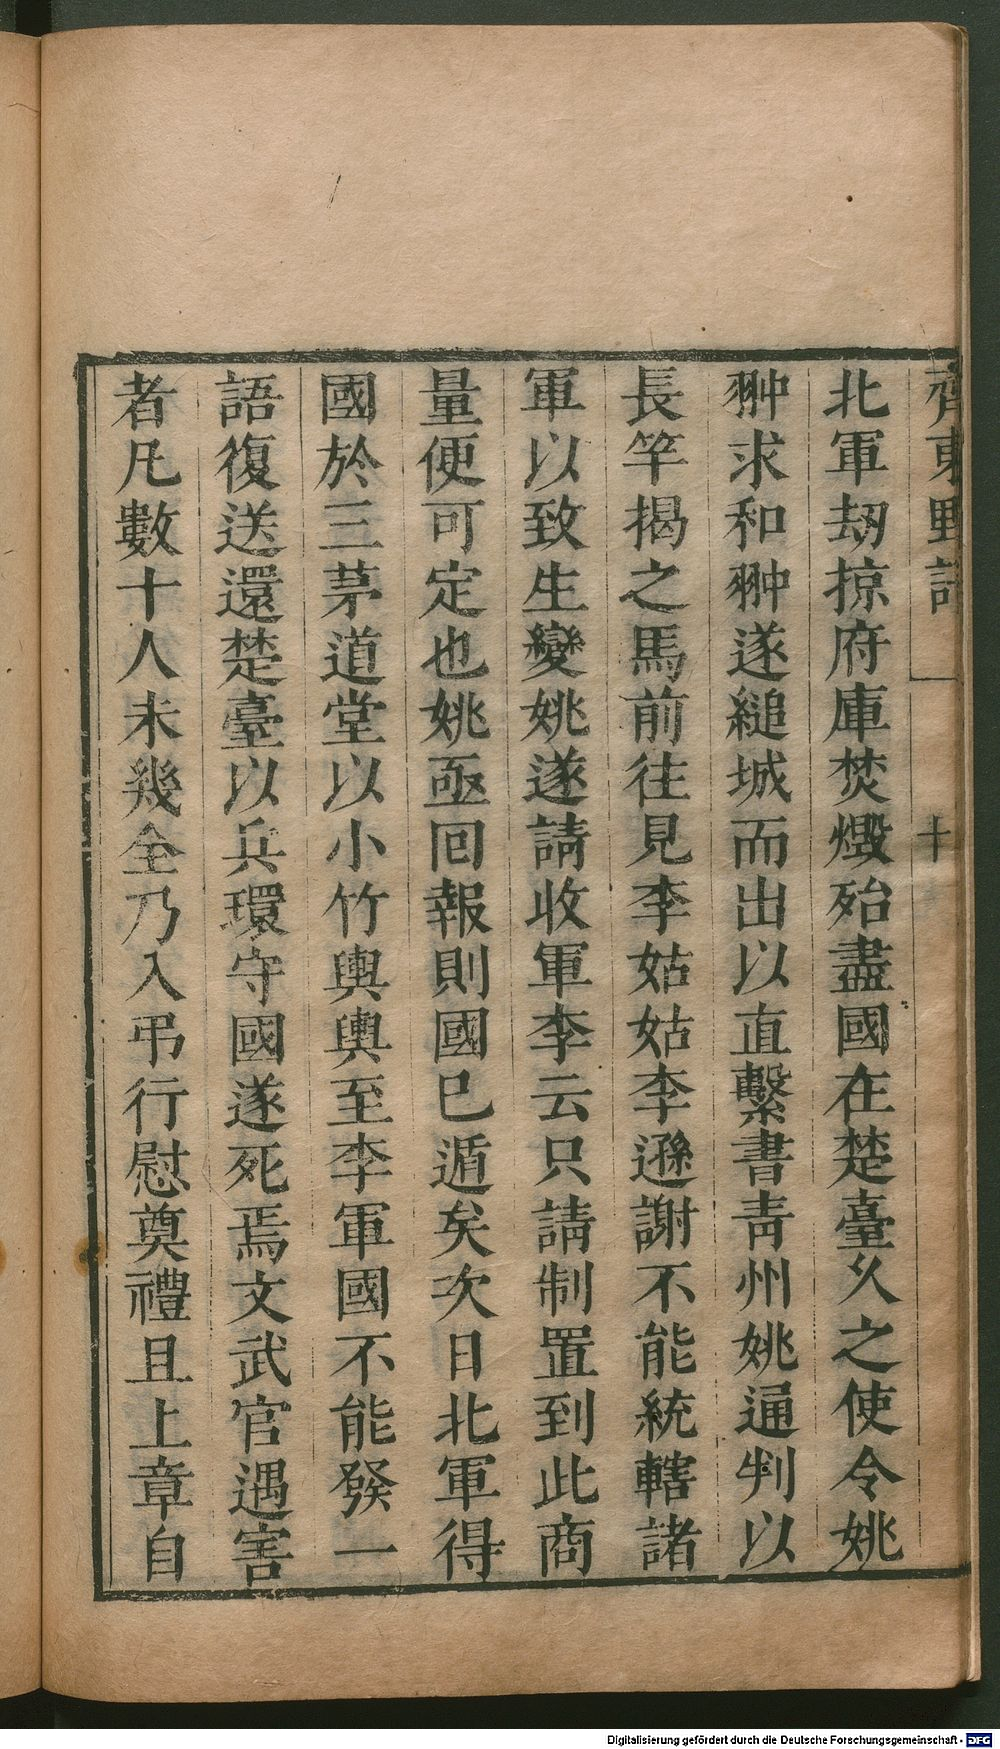 齊東野語
十
北軍劫掠府庫焚燬殆盡國在楚臺久之使令姚
翀求和翀遂縋城而出以直繫書青州姚通判以
長竿揭之馬前往見李姑姑李遜謝不能統轄諸
軍以致生變姚遂請收軍李云只請制置到此商
量便可定也姚亟回報則國已遁矣次日北軍得
國於三茅道堂以小竹輿輿至李軍國不能發一
語復送還楚臺以兵環守國遂死焉文武官遇害
者凡數十人未幾全乃入弔行慰奠禮且上章自
Digitalisierung gefördert durch die Deutsche Forschungsgemeinschaft - DFG